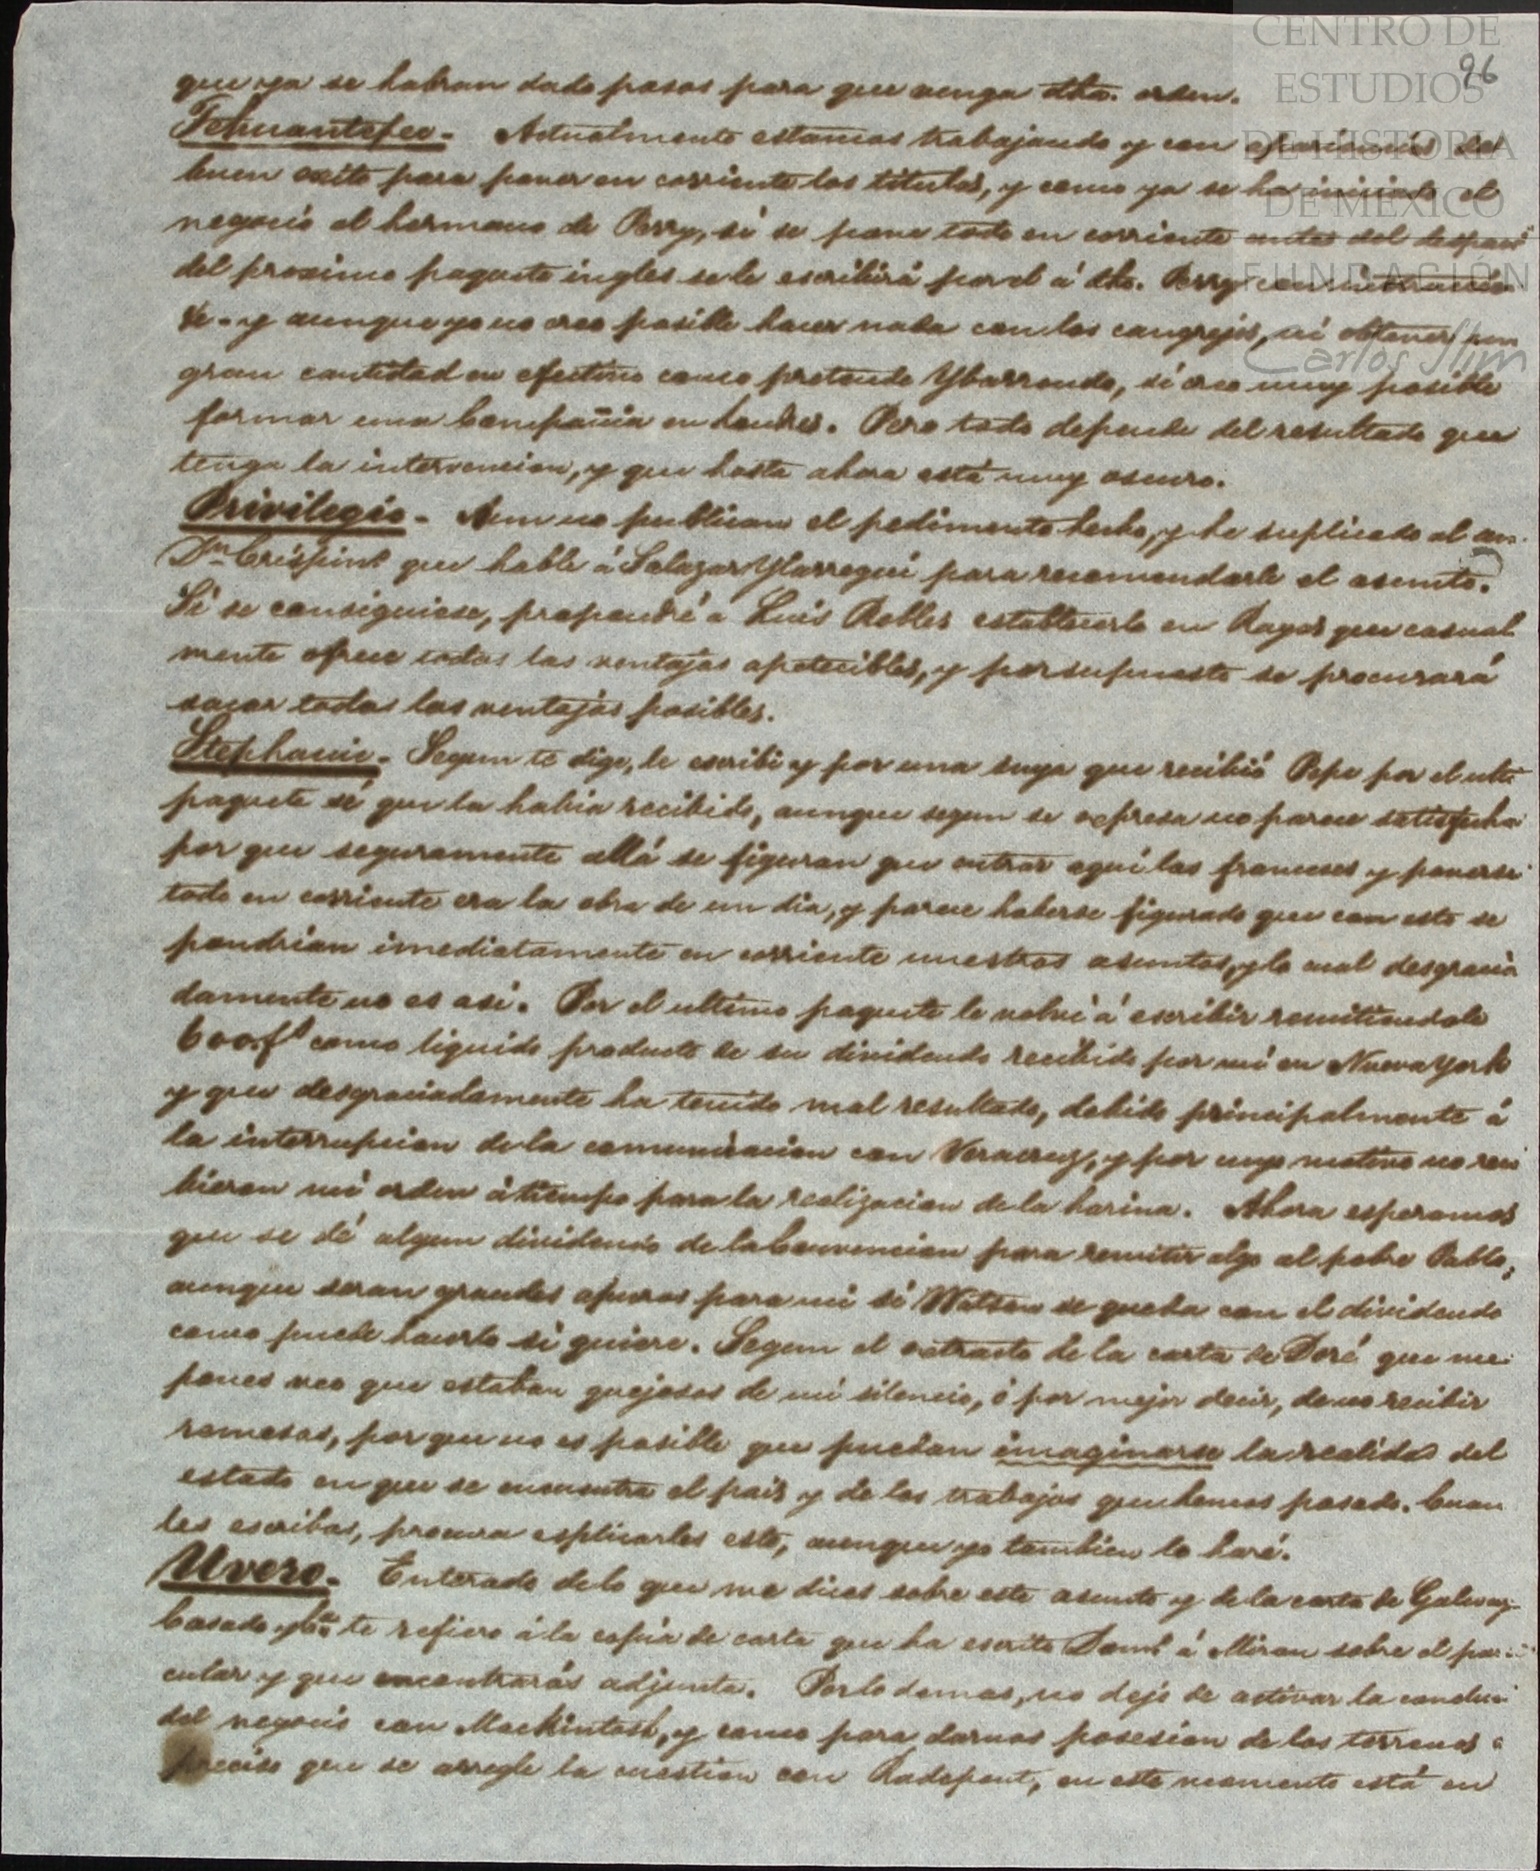 CENTRO DE
ESTUDIOS
DE HISTORIA
DE MÉXICO
FUNDACIÓN
Carlos Slim
96
que ya se habran dado pasos para que venga dha. orden.
Tehuantepec - Actualmente estamos trabajando y con apariencias de
buen exito para poner en corriente los titulos, y como ya se ha iniciado el
negocio al hermano de Perry, si se pone todo en corriente antes del despacho
del proximo paquete ingles se le escribirá por el á dho. Perry con
&c. y aunque yo no creo posible hacer nada con los cangrejos, ni obtener una
gran cantidad en efectivo como pretende Ybarrondo, sí creo muy posible
formar una Compañia en Londres. Pero todo depende del resultado que
tenga la intervencion, y que hasta ahora está muy oscuro.
Privilegio - Aun no publican el pedimento hecho, y he suplicado al
Dn. Crispin que hable á Salazar Ylarregui para recomendarle el asunto.
Si se consiguiese, propondré a Luis Robles establecerlo en Rayas que casual
mente ofrece todas las ventajas apetecibles, y por supuesto se procurará
sacar todas las ventajas posibles.
Stephanie - Segun te dige, le escribi y por una suya que recibió Pepe por el ultº
paquete sé que la habia recibido, aunque segun se expresa no parece satisfecha
por que seguramente allá se figuran que entrar aquí los franceses y ponerse
todo en corriente era la obra de un dia, y parece haberse figurado que con esto se
pondrian imediatamente en corriente nuestros asuntos, y lo cual desgracia
damente no es así. Por el ultimo paquete le volví á escribir remitiendole
600 fs como liquido producto de su dividendo recibido por mí en Nueva York
y que desgraciadamente ha tenido mal resultado, debido principalmente á
la interrupcion de la comunicacion con Veracruz, y por cuyo motivo no reci
bieron mi orden á tiempo para la realizacion de la harina. Ahora esperamos
que se dé algun dividendo de la Convencion para remitir algo al pobre Pablo,
aunque seran grandes apuros para mi si Watson se queda con el dividendo
como puede hacerlo si quiere. Segun el extracto de la carta de Doré que me
pones veo que estaban quejosos de mi silencio, ó por mejor decir, de no recibir
remesas, por que no es posible que puedan imaginarse la realidad del
estado en que se encuentra el pais y de los trabajos que hemos pasado. Cuan
les escribas, procura esplicarles esto, aunque yo tambien lo haré.
Uvero. Enterado de lo que me dices sobre este asunto y de la carta de Galway
Casado y Ca. te refiero á la copia de carta que ha escrito á Miran sobre el par
cular y que encontrarás adjunta. Por lo demas, no dejo de activar la conclusi
del negocio con Mackintosh, y como para darnos posesion de los terrenos
preciso que se arregle la cuestion con Radepont, en este momento está en